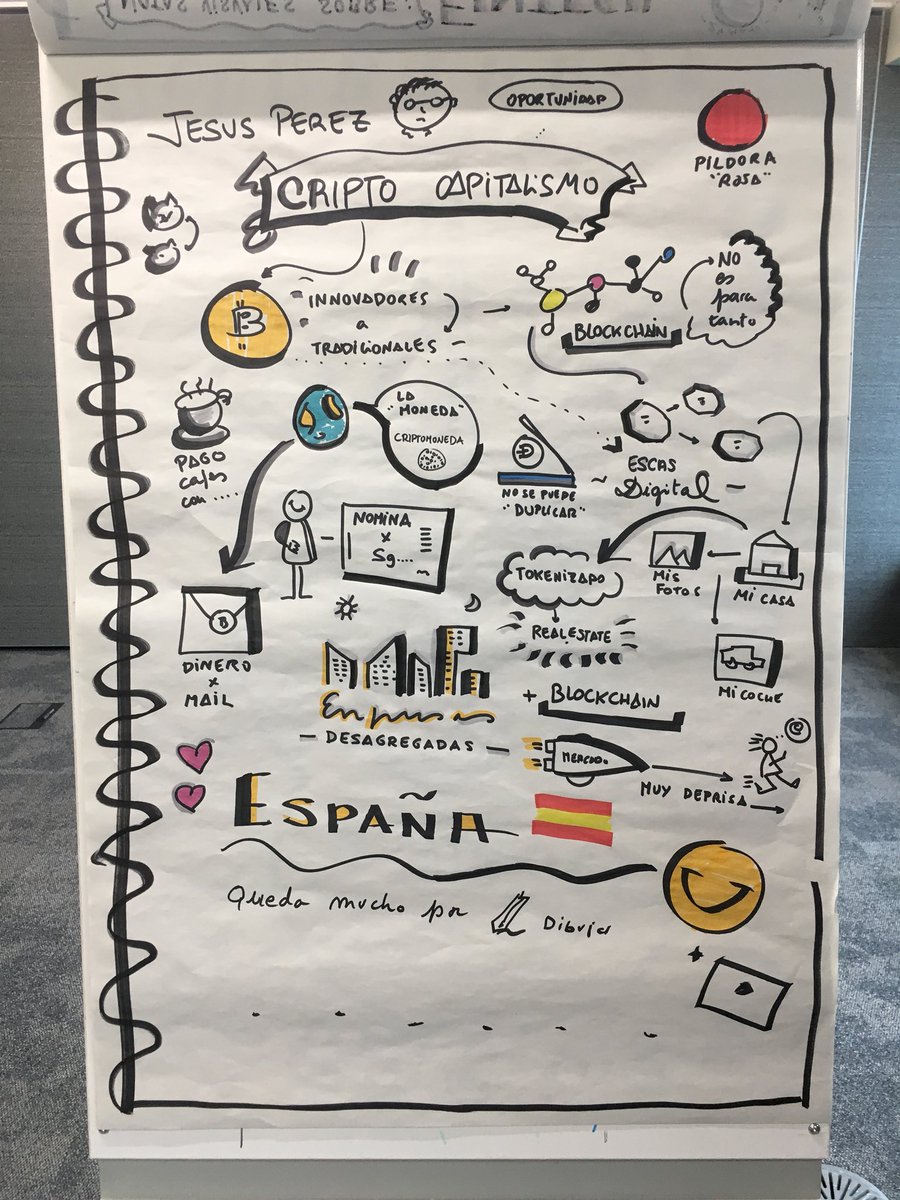 JESUS PEREZ
OPORTUNIDAD
PILDORA
"ROSA"
CRIPTO CAPITALISMO
B
INNOVADORES
a
TRADICIONALES
BLOCKCHAIN
NO
es
para
tanto
PAGO
cafes
con .....
LA
"MONEDA"
CRIPTOMONEDA
NO SE PUEDE
"DUPLICAR"
ESCAS
Digital
NOMINA
x
Sg....
TOKENIZADO
MIS
FOTOS
MI CASA
REALESTATE
B
DINERO
x
MAIL
MI COCHE
Empresas
DESAGREGADAS
+ BLOCKCHAIN
MERCADO.
MUY DEPRISA
ESPAÑA
Queda mucho por Dibujar